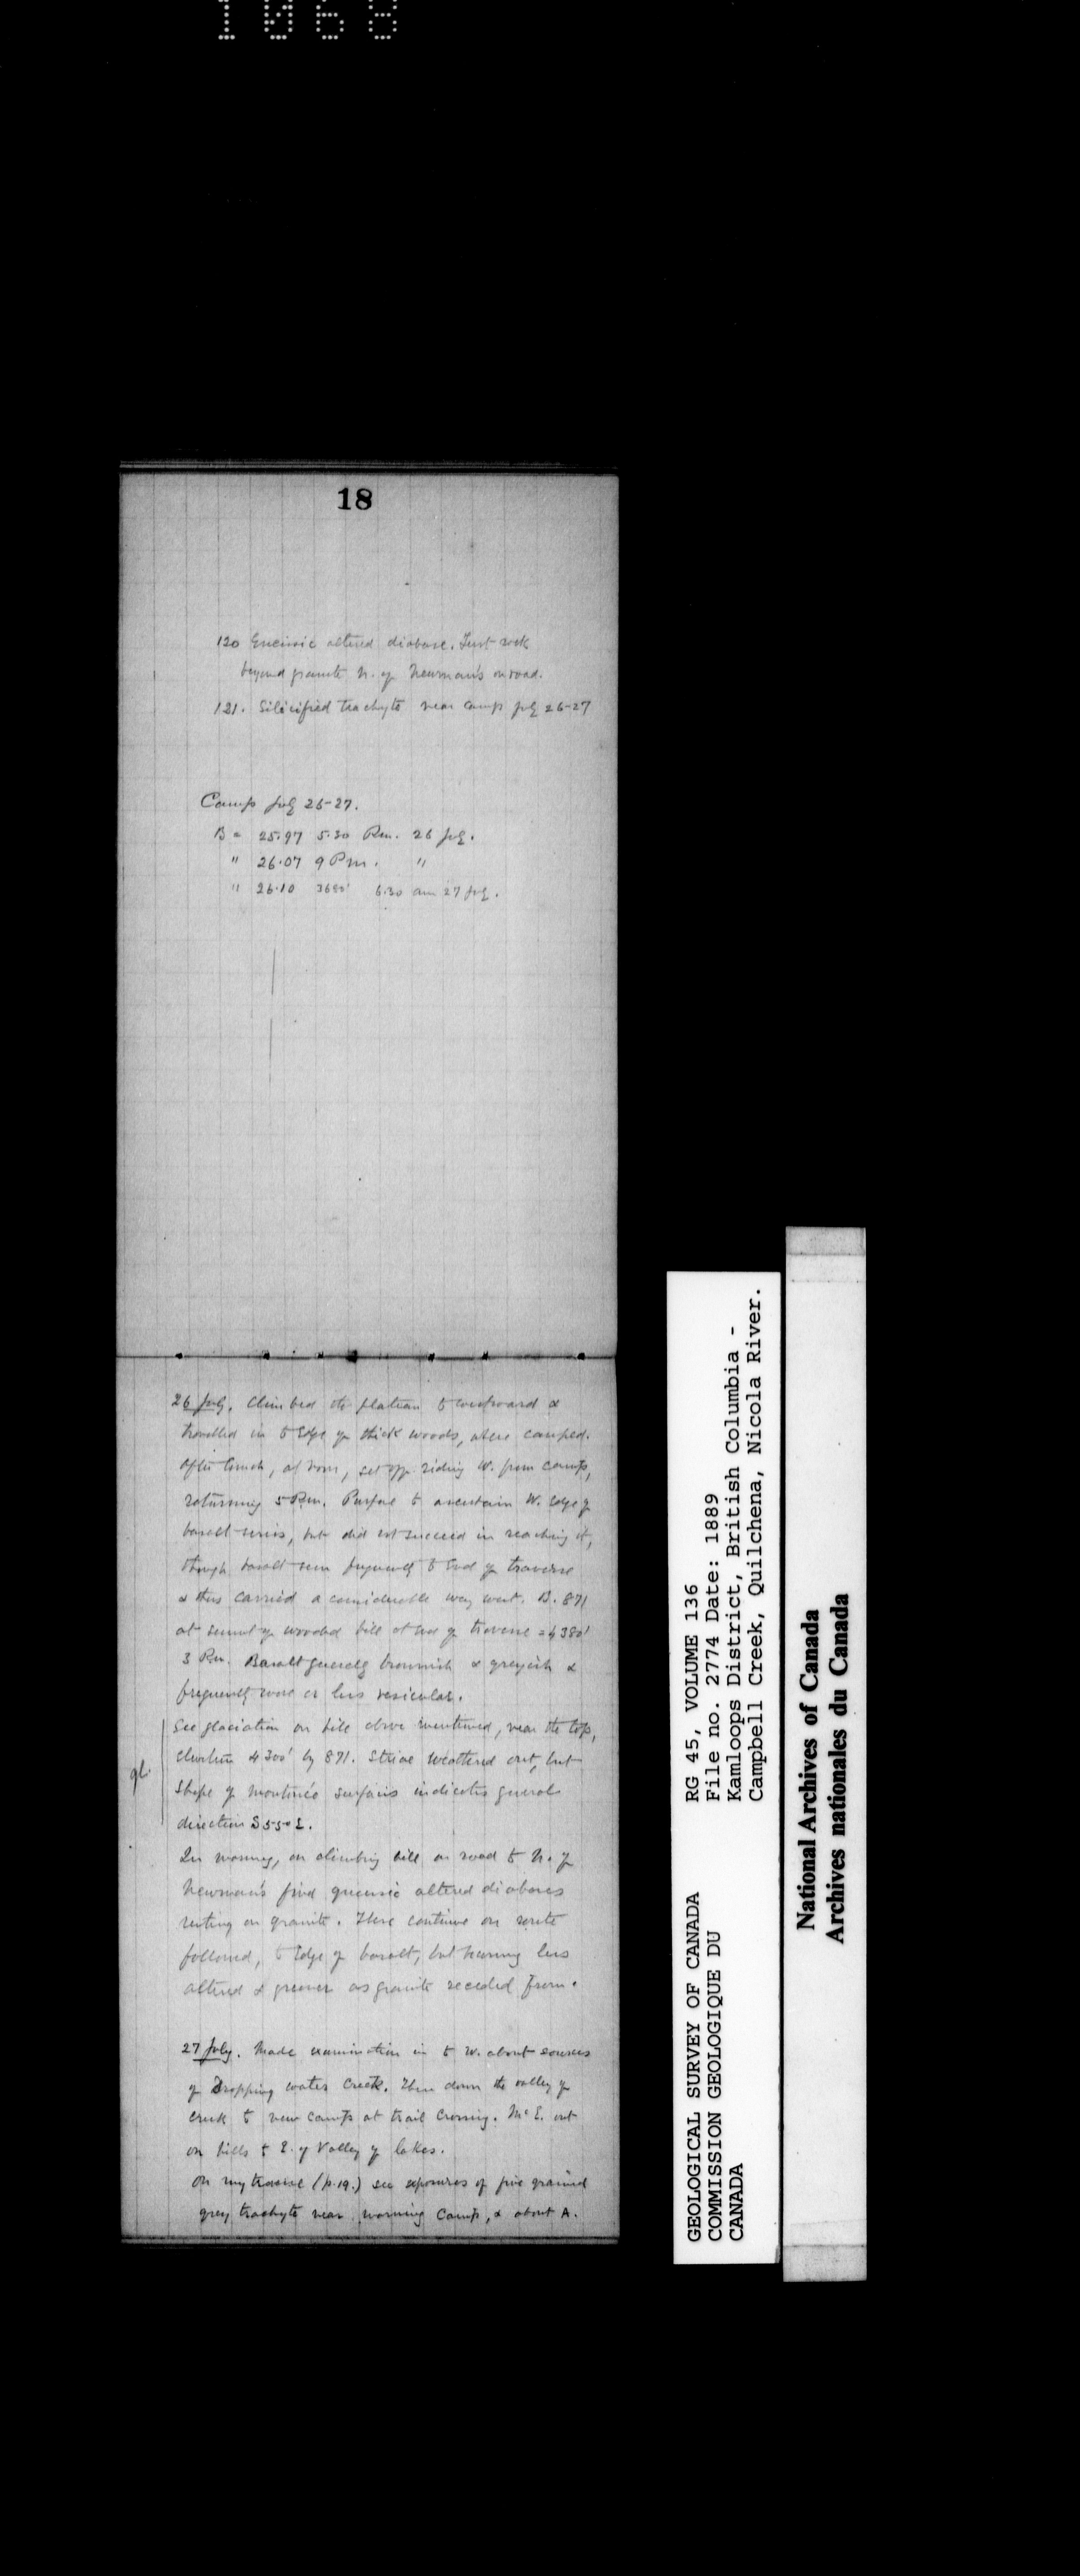 1068
18
120 Gneissic altered diabase. First rock
beyond granite N. of Newman's on road.
121. Silicified trachyte near camp July 26-27
Camp July 26-27.
B = 25.97 5.30 P.m. 26 July.
" 26.07 9 P.m. "
" 26.10 3680' 6.30 am 27 July.
26 July. Climbed the plateau to westward &
travelled in to edge of thick woods, where camped.
After lunch, at noon, set off riding W. from camp,
returning 5 P.m. Purpose to ascertain W. edge of
basalt series, but did not succeed in reaching it,
though basalt seen frequently to end of traverse
& thus carried a considerable way west. B. 871
at summit of wooded hill at end of traverse = 4380'
3 P.m. Basalt generally brownish & greyish &
frequently more or less vesicular.
See glaciation on hill above mentioned, near the top,
elevation 4300' by 871. Striae weathered out, but
gl.
shape of moutonée surfaces indicates general
direction S 55 E.
In morning, on climbing hill on road to N. of
Newman's find gneissic altered diabases
resting on granite. These continue on route
followed, to edge of basalt, but becoming less
altered & greener as granite receded from.
27 July. Made examination in to W. about sources
of Dropping water Creek. Then down the valley of
creek to new camp at trail crossing. McE. out
on hills to E. of Valley of lakes.
On my traverse (p. 19.) see exposures of fine grained
grey trachyte near morning camp, & about A.
GEOLOGICAL SURVEY OF CANADA
COMMISSION GEOLOGIQUE DU
CANADA
RG 45, VOLUME 136
File no. 2774 Date: 1889
Kamloops District, British Columbia -
Campbell Creek, Quilchena, Nicola River.
National Archives of Canada
Archives nationales du Canada